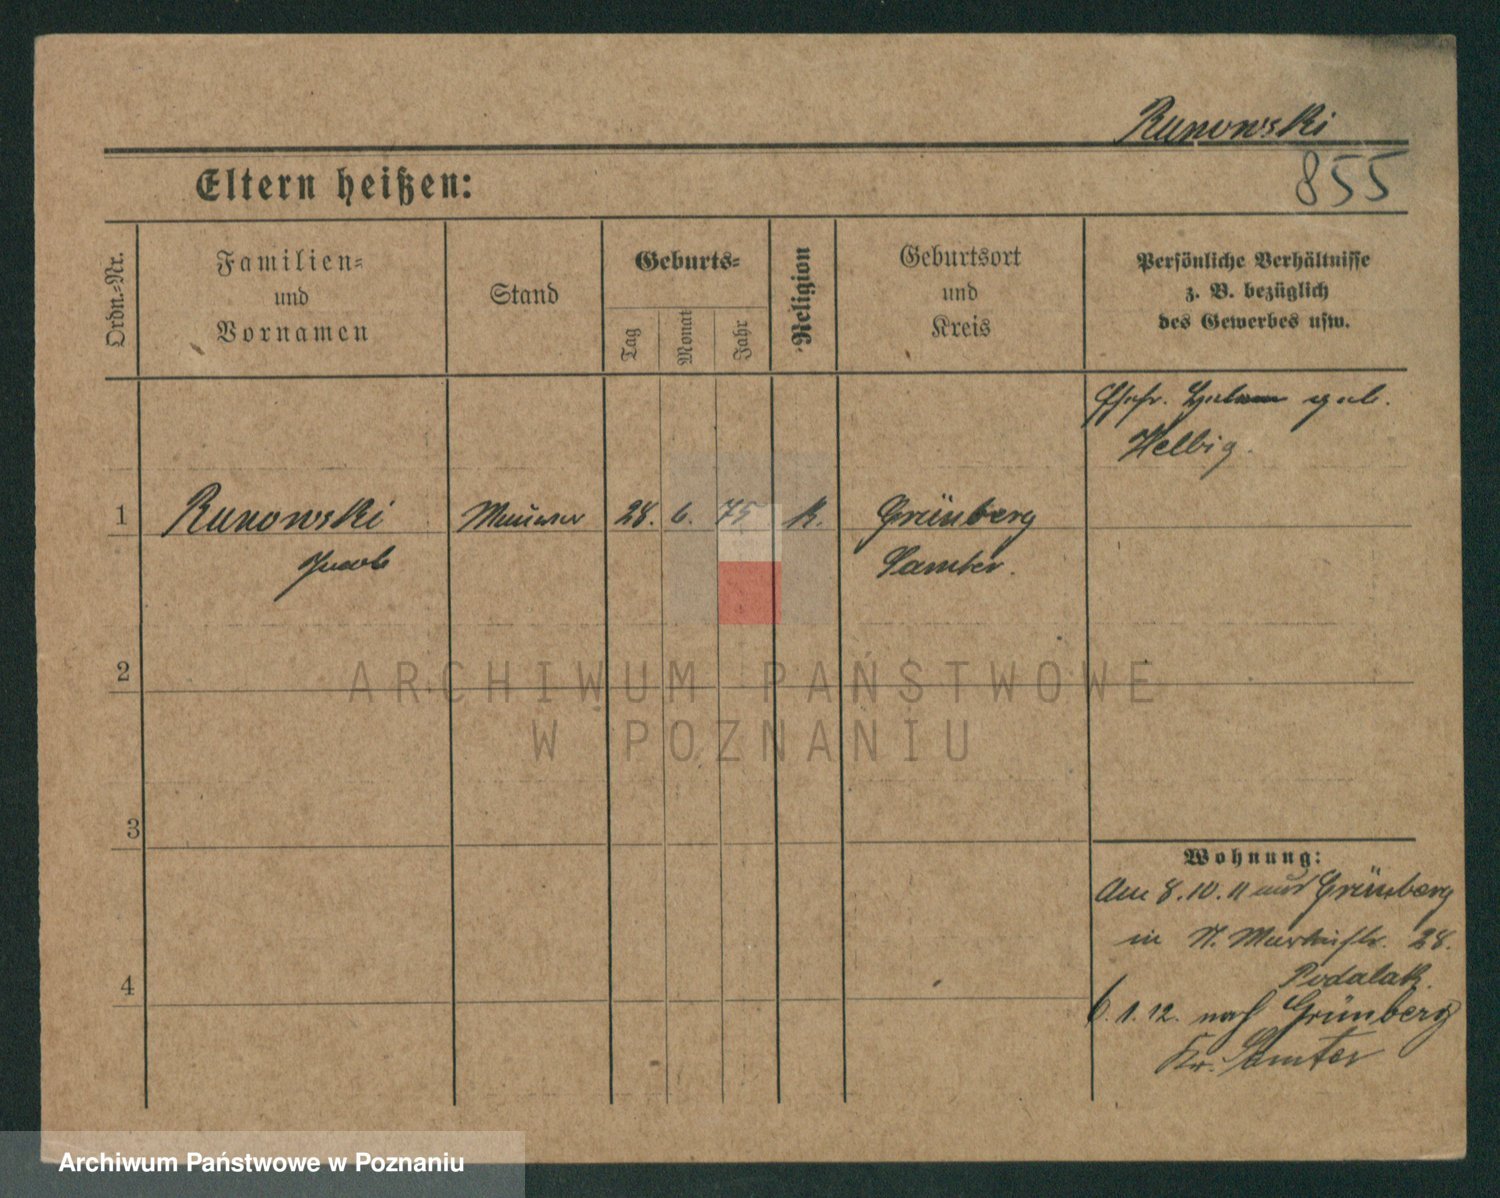 Runowski
855
Eltern heißen:
Ordn.-Nr.
Familien-
und
Vornamen
Stand
Geburts-
Tag
Monat
Jahr
Religion
Geburtsort
und
Kreis
Persönliche Verhältnisse
z. B. bezüglich
des Gewerbes usw.
Ehefr. geb.
Helbig.
1 Runowski Maurer 28. 6. 75 k. Grünberg
Jacob Samter.
2
3
4
Wohnung:
Am 8.10.11 aus Grünberg
in St. Martinstr. 28.
Podalak.
6.1.12. nach Grünberg
Kr. Samter
ARCHIWUM PAŃSTWOWE
W POZNANIU
Archiwum Państwowe w Poznaniu